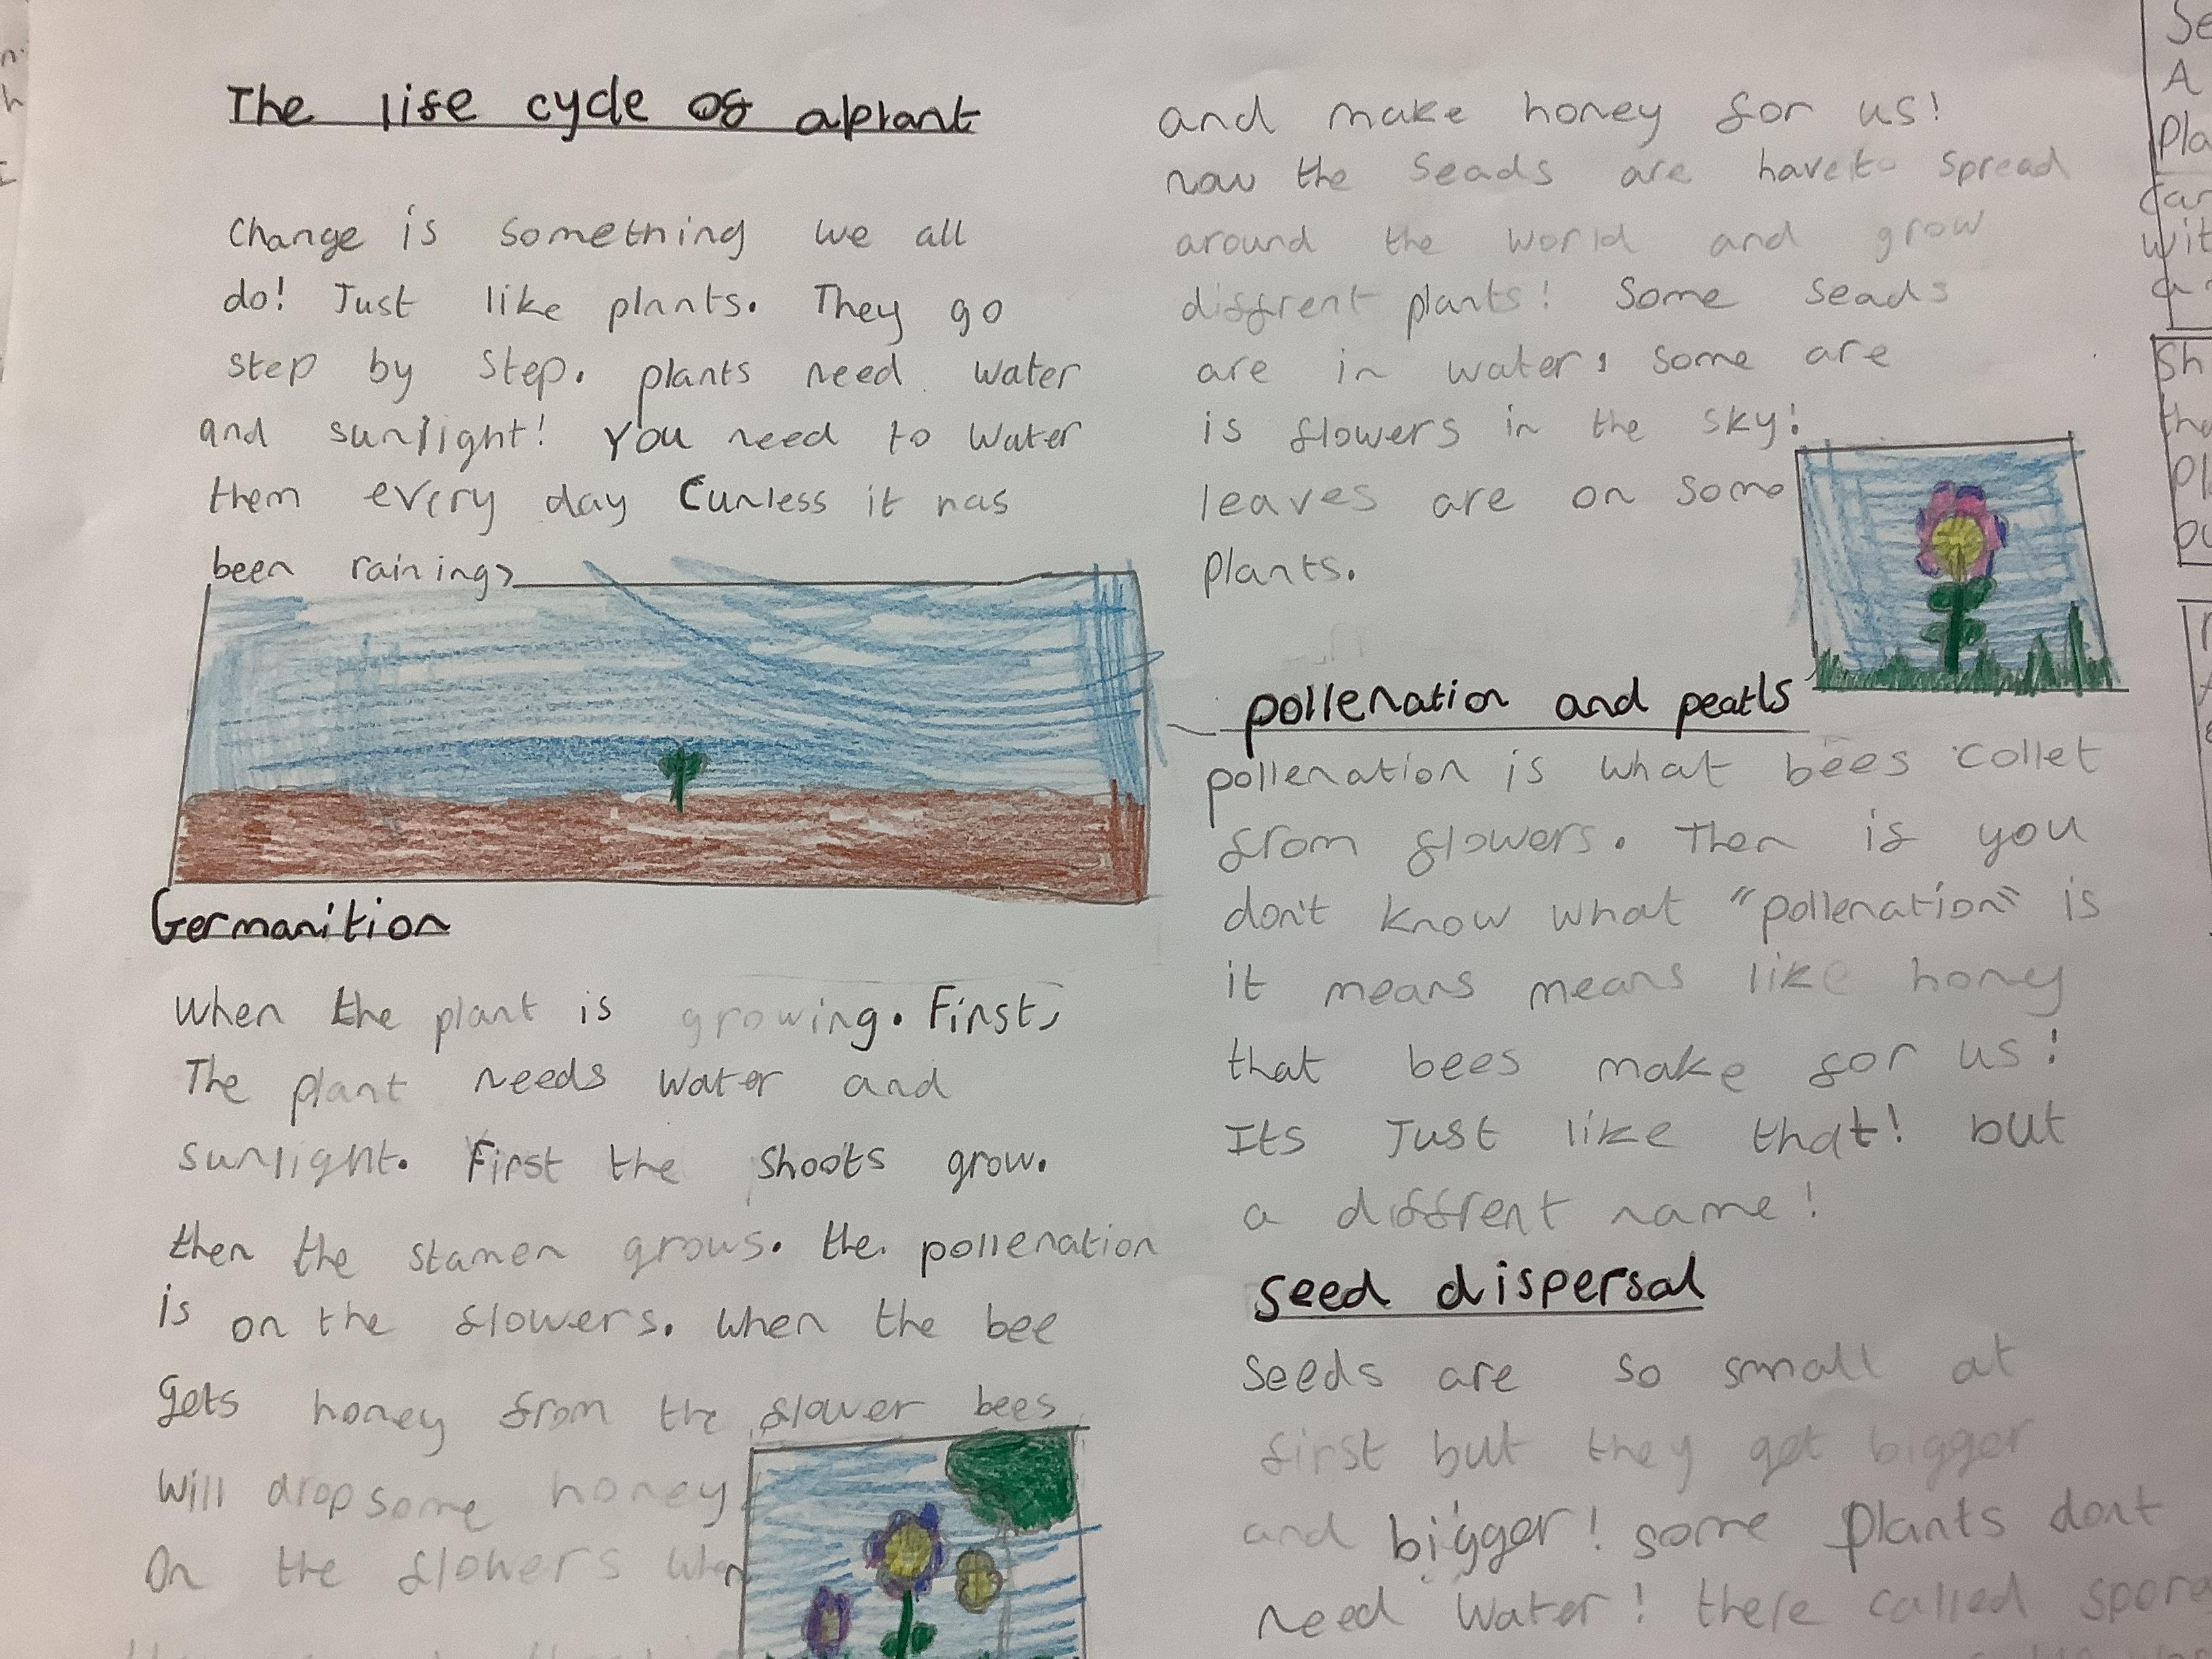 The life cycle of a plant
Change is something we all
do! Just like plants. They go
step by step. plants need water
and sunlight! You need to water
them every day (unless it has
been raining)
Germanition
When the plant is growing. First,
The plant needs water and
sunlight. First the shoots grow.
then the stamen grows. the pollenation
is on the flowers. when the bee
gets honey from the flower bees
will drop some honey
On the flowers when
and make honey for us!
now the seads are have to spread
around the world and grow
diffrent plants! Some seads
are in water, some are
is flowers in the sky!
leaves are on some
plants.
pollenation and peatls
pollenation is what bees collet
from flowers. Then if you
don't know what "pollenation" is
it means means like honey
that bees make for us!
Its Just like that! but
a diffrent name!
Seed dispersal
Seeds are so small at
first but they get bigger
and bigger! some plants dont
need water! there called spore
A
Sh